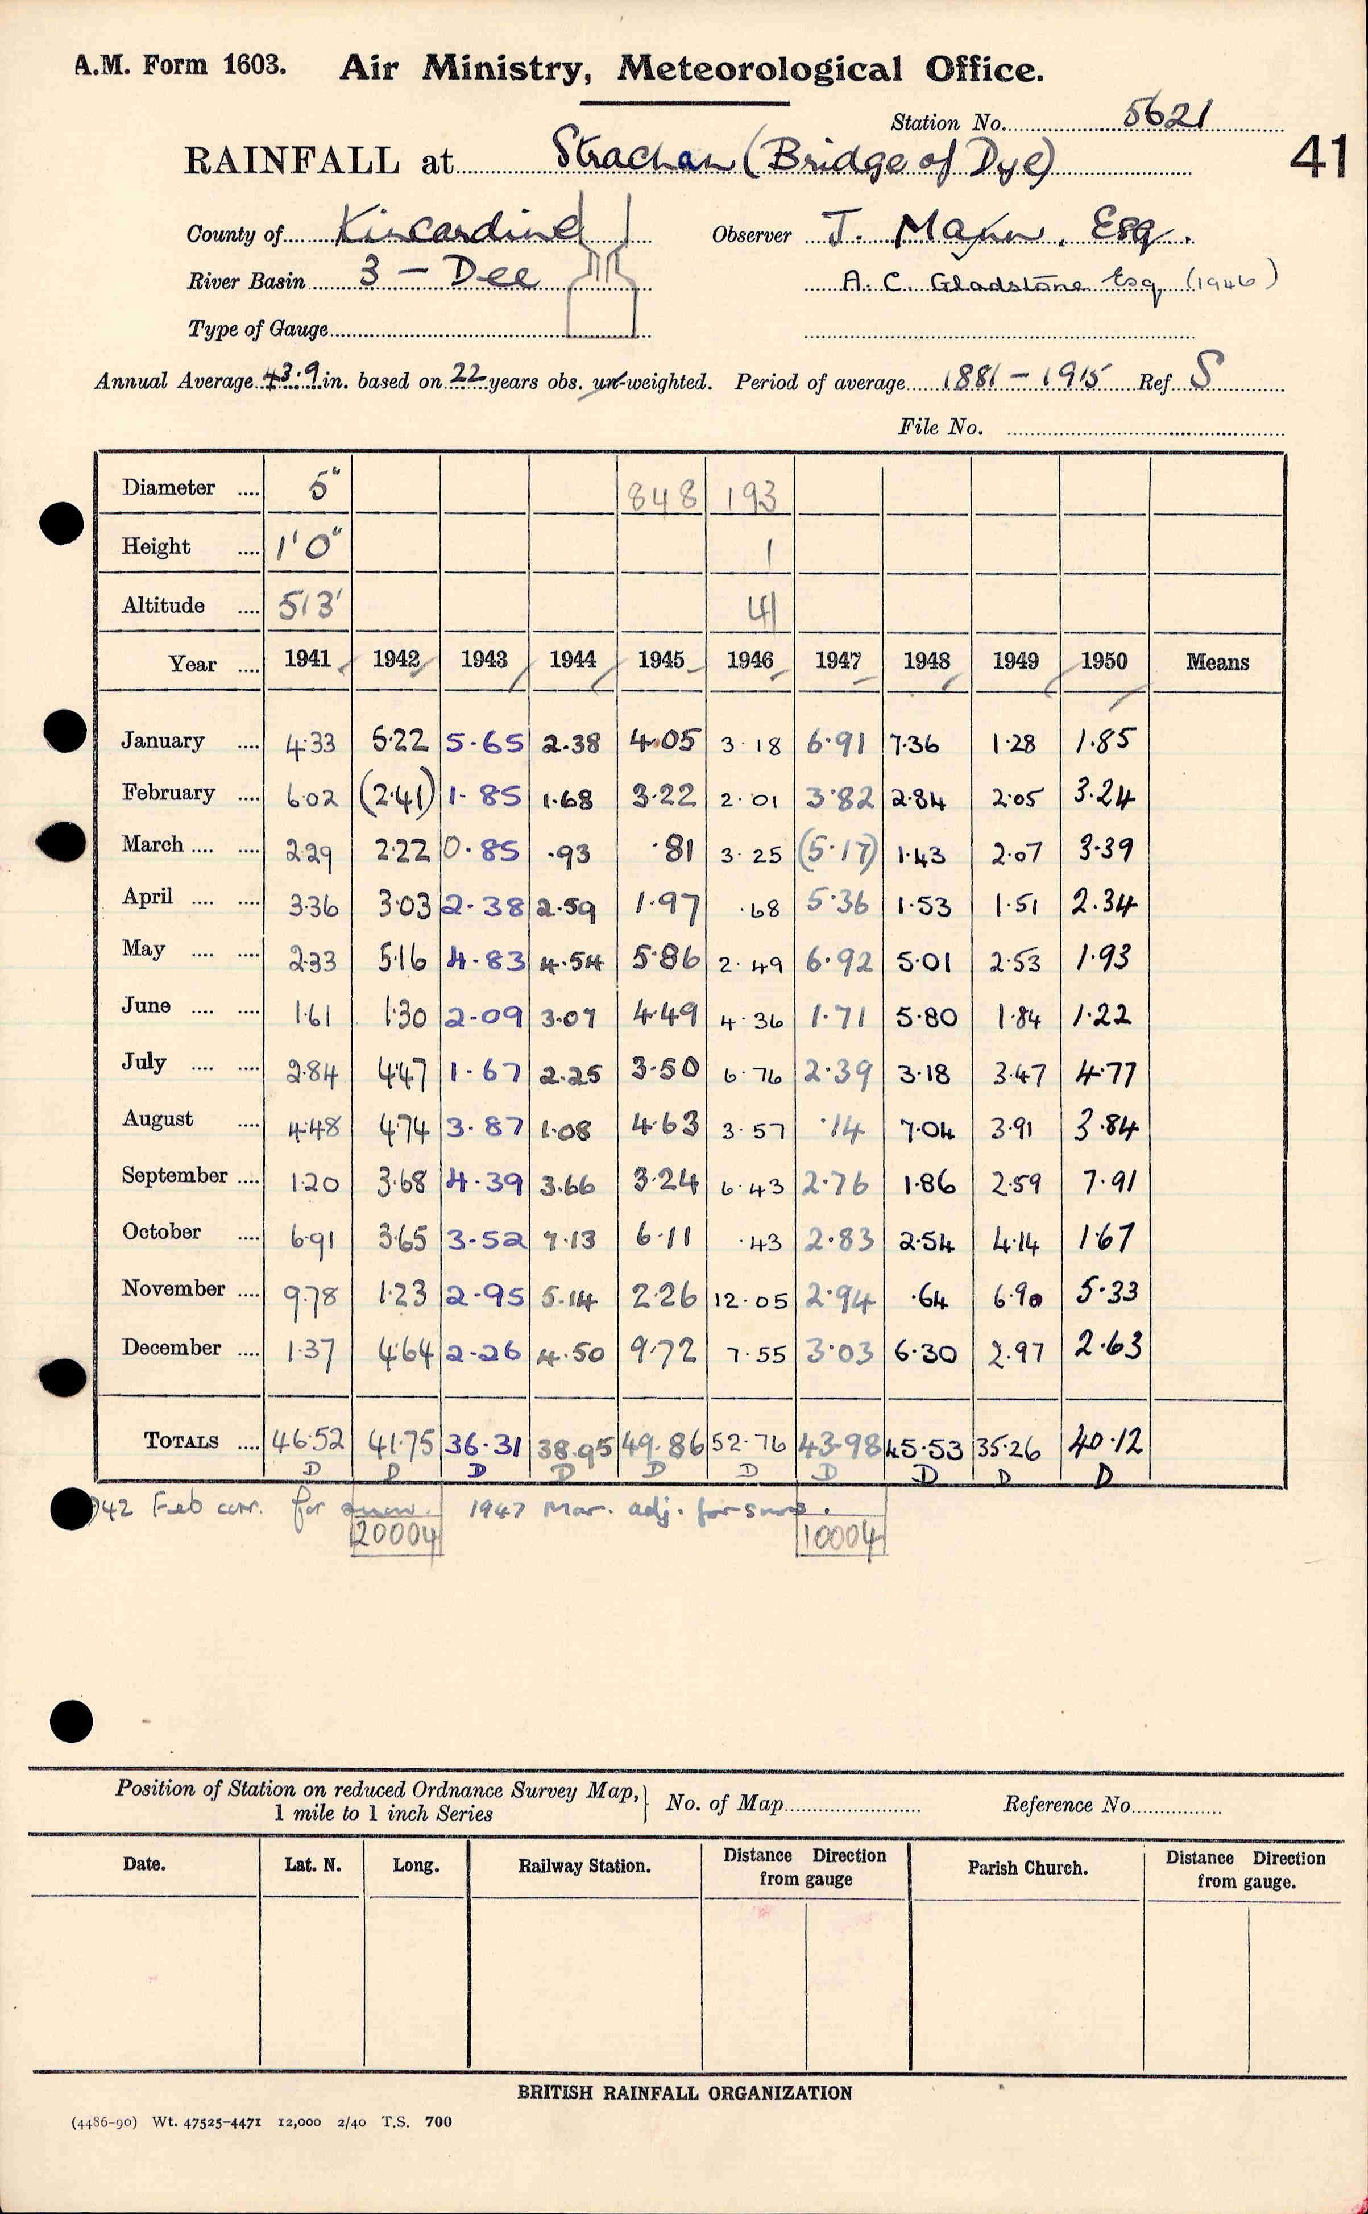 A.M. Form 1603. Air Ministry, Meteorological Office.
Station No. 5621
RAINFALL at Strachan (Bridge of Dye) 41
County of Kincardine Observer J. Esq.
River Basin 3 - Dee A. C. Gladstone Esq (1946)
Type of Gauge
Annual Average 43.9 in. based on 22 years obs. un-weighted. Period of average 1881-1915 Ref S
File No.
Diameter .... 5" 848 193
Height .... 1'0" 1
Altitude .... 513' 41
Year .... 1941 1942 1943 1944 1945 1946 1947 1948 1949 1950 Means
January .... 4.33 5.22 5.65 2.38 4.05 3.18 6.91 7.36 1.28 1.85
February .... 6.02 (2.41) 1.85 1.68 3.22 2.01 3.82 2.84 2.05 3.24
March .... .... 2.29 2.22 0.85 .93 .81 3.25 (5.17) 1.43 2.07 3.39
April .... .... 3.36 3.03 2.38 2.59 1.97 .68 5.36 1.53 1.51 2.34
May .... .... 2.33 5.16 4.83 4.54 5.86 2.49 6.92 5.01 2.53 1.93
June .... .... 1.61 1.30 2.09 3.07 4.49 4.36 1.71 5.80 1.84 1.22
July .... .... 2.84 4.47 1.67 2.25 3.50 6.76 2.39 3.18 3.47 4.77
August .... 4.48 4.74 3.87 1.08 4.63 3.57 .14 7.04 3.91 3.84
September .... 1.20 3.68 4.39 3.66 3.24 6.43 2.76 1.86 2.59 7.91
October .... 6.91 3.65 3.52 7.13 6.11 .43 2.83 2.54 4.14 1.67
November .... 9.78 1.23 2.95 5.14 2.26 12.05 2.94 .64 6.90 5.33
December .... 1.37 4.64 2.26 4.50 9.72 7.55 3.03 6.30 2.97 2.63
TOTALS .... 46.52 41.75 36.31 38.95 49.86 52.76 43.98 45.53 35.26 40.12
D D D D D D D D D D
42 Feb corr. for snow. 1947 Mar. adj. for snow.
20004 10004
Position of Station on reduced Ordnance Survey Map, 1 mile to 1 inch Series } No. of Map Reference No.
Date. Lat. N. Long. Railway Station. Distance from gauge Direction Parish Church. Distance Direction from gauge.
BRITISH RAINFALL ORGANIZATION
(4486-90) Wt. 47525-4471 12,000 2/40 T.S. 700